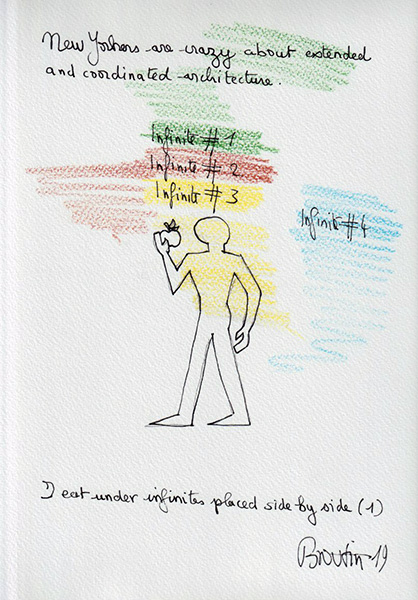 New Yorkers are crazy about extended
and coordinated architecture.
Infinite # 1
Infinite # 2
Infinite # 3
Infinite # 4
I eat under infinites placed side by side (1)
Broutin 19